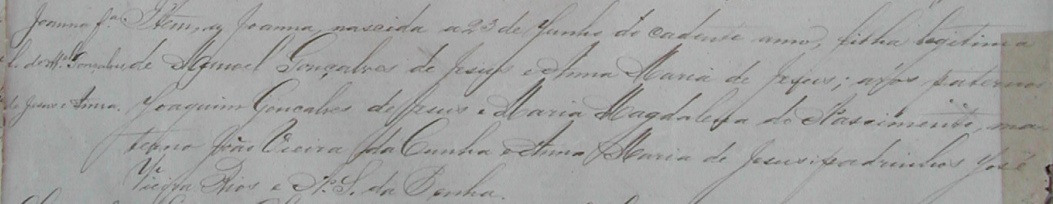 Joanna fª. Item, Joanna, nascida a 23 de Junho do cadente anno, filha legitima
l. de Mel. Gonçalves de Manoel Gonçalves de Jesus e Anna Maria de Jesus; avós paternos
de Jesus e Anna. Joaquim Gonçalves de Jesus e Maria Magdalena do Nascimento, ma-
terno João Vieira da Cunha e Anna Maria de Jesus: padrinhos José
Vieira Rios e N. S. da Penha.